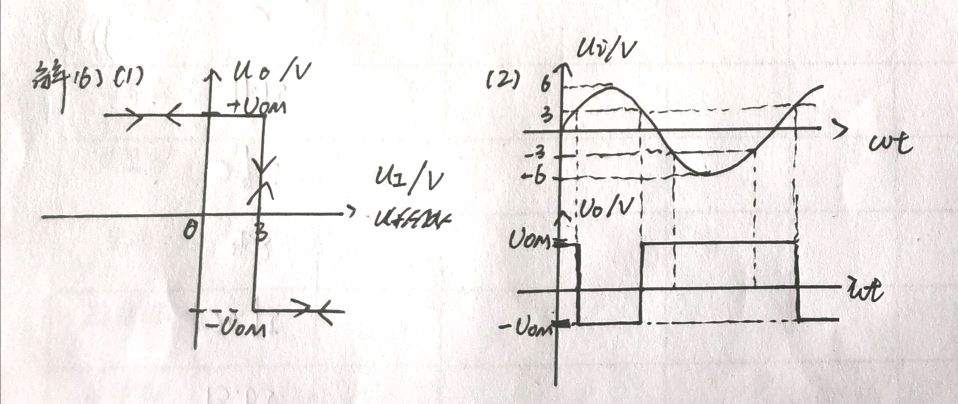 解(6)(1)
uo/V
+UOM
uI/V
0
3
-UOM
(2)
ui/V
6
3
-3
-6
wt
uo/V
UOM
wt
-UOM